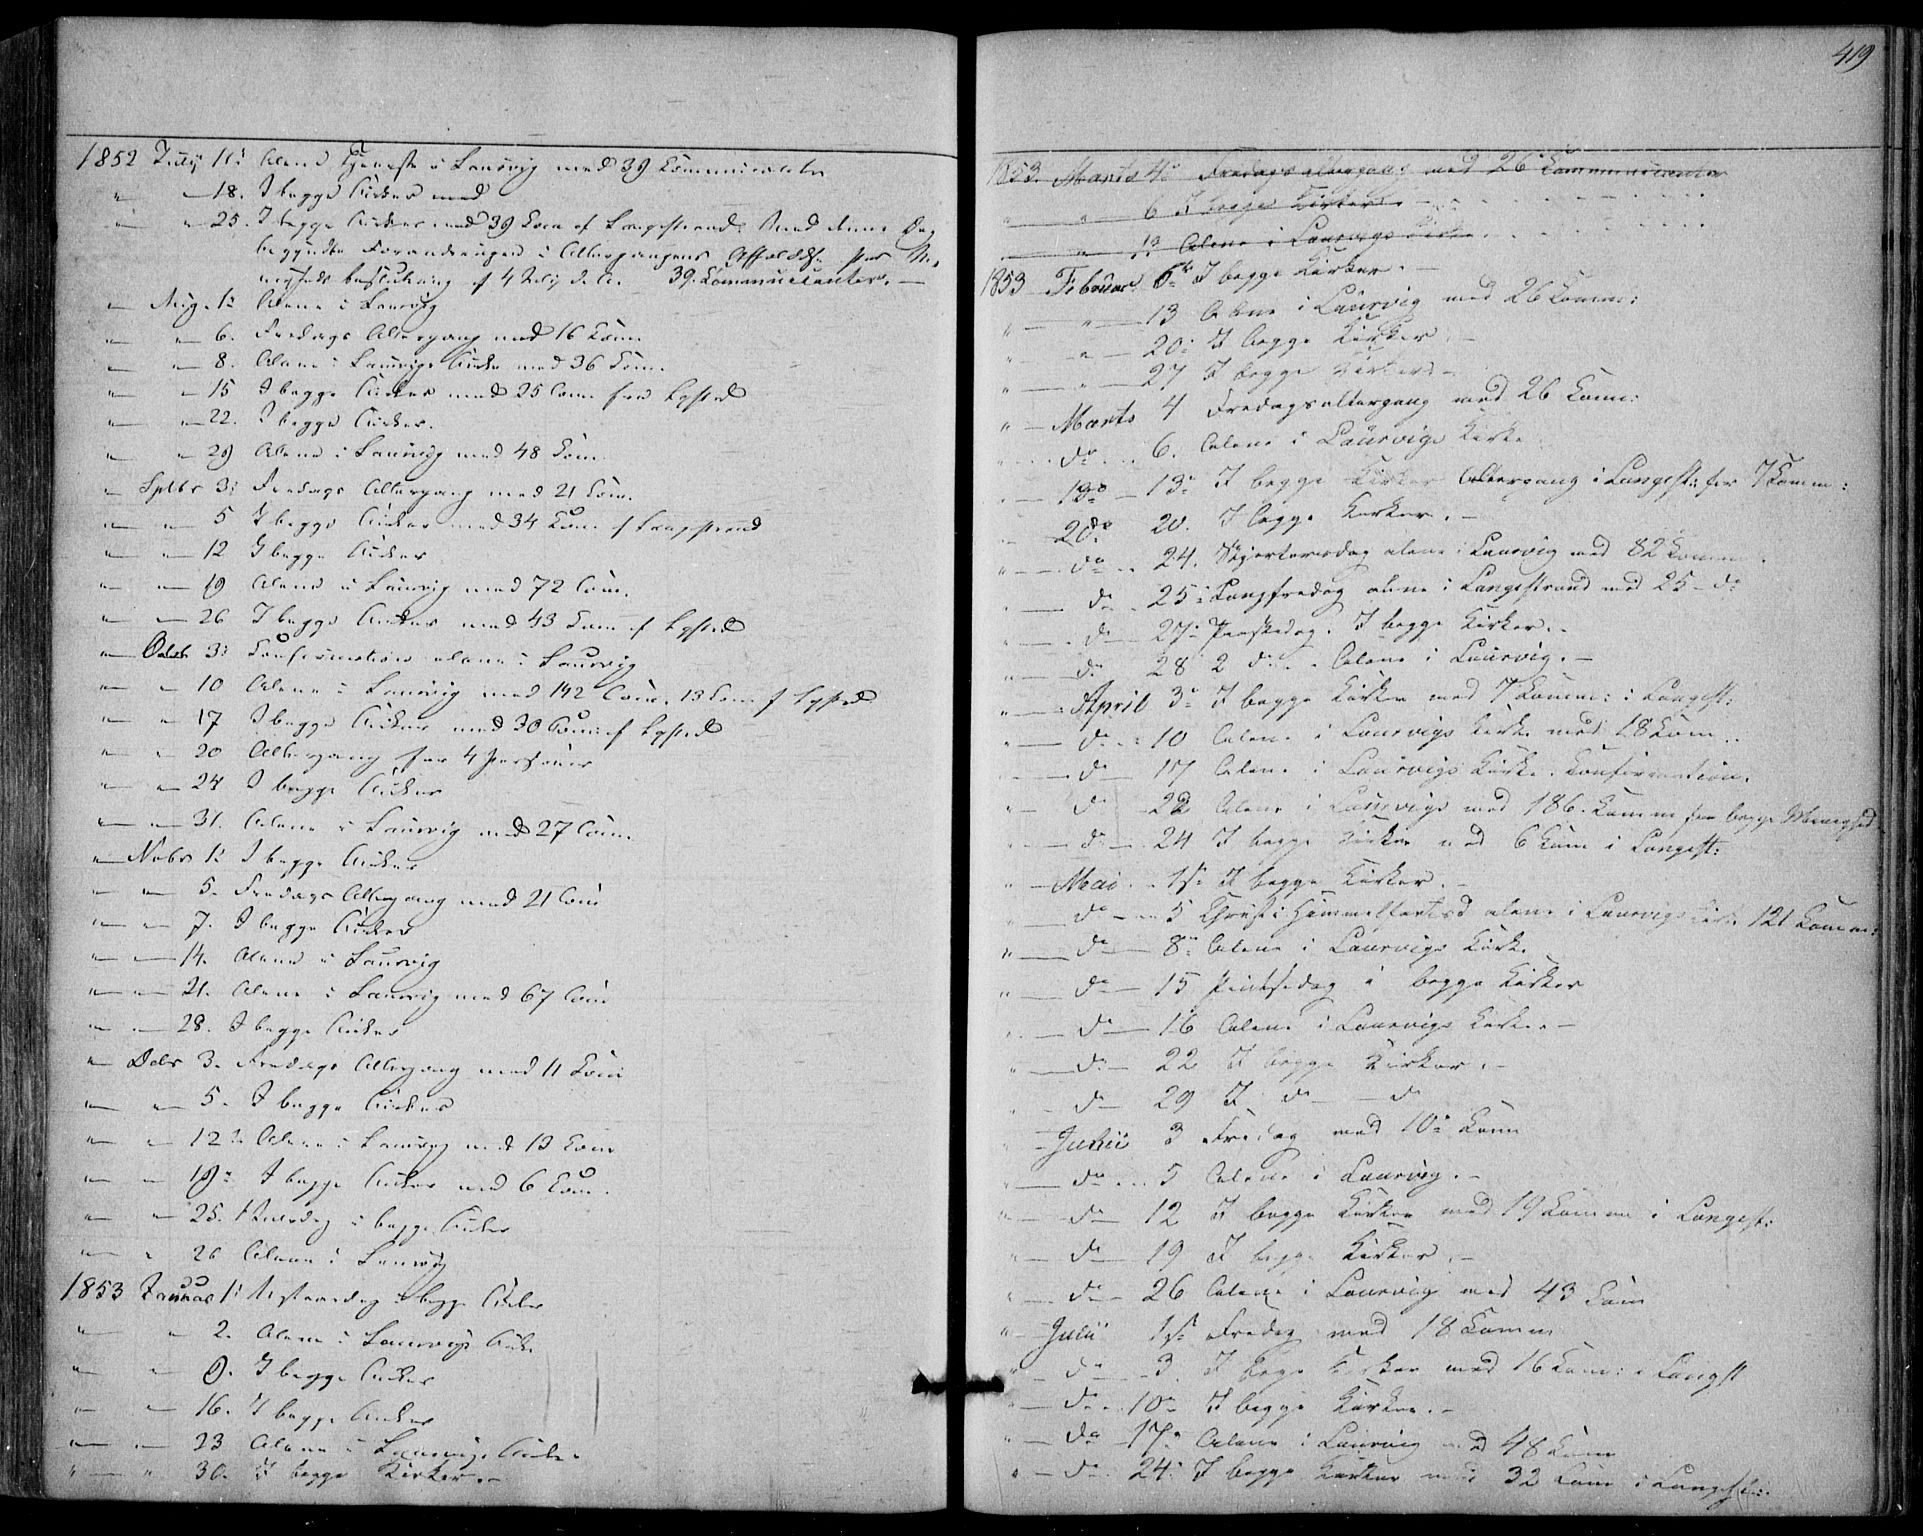 1852 July 11. Alene Tjeneste i Laurvig med 39 Communicanter
" " 18. I begge Kirker med
" " 25. I begge Kirker med 39 Com af Langestrand. Med denne Dag
begyndte Forandringen i Altergangens Afholdelse
af 4 July d. A. 39 Communicanter. —
" Aug. 1. Alene i Laurvig
" " 6. Fredags Altergang med 16 Com.
" " 8. Alene i Laurvigs Kirke med 36 Com.
" " 15 I begge Kirker med 25 Com fra
" " 22. I begge Kirker.
" " 29 Alene i Laurvig med 48 Com.
" Sptbr 3. Fredags Altergang med 21 Com.
" " 5 I begge Kirker med 34 Com f Langestrand
" " 12 I begge Kirker
" " 19 Alene i Laurvig med 72 Com.
" " 26 I begge Kirker med 43 Com f
" Octob 3. Confirmation alene i Laurvig
" " 10 Alene i Laurvig med 142 Com. 13 Com f
" " 17 I begge Kirker med 30 Com f
" " 20 Altergang for 4 Personer
" " 24 I begge Kirker
" " 31. Alene i Laurvig med 27 Com.
" Nobr 1. I begge Kirker
" " 5. Fredags Altergang med 21 Com
" " 7. I begge Kirker
" " 14. Alene i Laurvig
" " 21. Alene i Laurvig med 67 Com
" " 28. I begge Kirker
" Debr 3. Fredags Altergang med 11 Com
" " 5. I begge Kirker
" " 12. Alene i Laurvig med 13 Com
" " 19. I begge Kirker med 6 Com.
" " 25. Juledag i begge Kirker
" " 26 Alene i Laurvig
1853 Januar 1. Nytaarsdag i begge Kirker
" " 2. Alene i Laurvigs Kirke
" " 9. I begge Kirker
" " 16. I begge Kirker
" " 23 Alene i Laurvigs Kirke.
" " 30. I begge Kirker. —
419
1853. Marts 4. Fredags altergang med 26 Kommunicanter
" " 6 I begge Kirker. —
" " 13 Alene i Laurvigs Kirke.
1853 Februar 6te I begge Kirker. —
" " 13 Alene i Laurvig med 26 Komm:
" " 20. I begge Kirker —
" " 27 I begge Kirker —
" Marts 4 Fredagsaltergang med 26 Komm:
" do 6. Alene i Laurvigs Kirke
" 13. 13. I begge Kirker Altergang i Langest: for 7 Komm:
" 20. 20. I begge Kirker. —
" do 24. Skjertorsdag alene i Laurvig med 82 Komm.
" do 25 Langfredag alene i Langestrand med 25 do
" do 27. Paaskedag. I begge Kirker. —
" do 28 2 d. Alene i Laurvig. —
" April 3. I begge Kirker med 7 Komm: i Langest:
" do 10 Alene i Laurvigs Kirke med 18 Kom.
" do 17 Alene i Laurvigs Kirke. Konfirmation.
" do 22 Alene i Laurvigs med 186. Komm fra begge Menighed.
" do 24 I begge Kirker med 6 Kom i Langest:
" Mai 1ste I begge Kirker. —
" do 5 Christi Himmelfartsd alene i Laurvigs Kirke 121 Komm:
" do 8. Alene i Laurvigs Kirke.
" do 15 Pintsedag i begge Kirker
" do 16 Alene i Laurvigs Kirke. —
" do 22 I begge Kirker. —
" do 29 I do — do
" Junii 3 Fredag med 10. Komm
" do 5 Alene i Laurvig. —
" do 12 I begge Kirker med 19 Komm i Langest:
" do 19 I begge Kirker. —
" do 26 Alene i Laurvig med 43 Kom
" Julii 1ste Fredag med 18 Komm
" do 3. I begge Kirker med 16 Kom: i Langest
" do 10. I begge Kirker. —
" do 17. Alene i Laurvig med 48 Kom
" do 24. I begge Kirker med 32 Kom i Langest:.